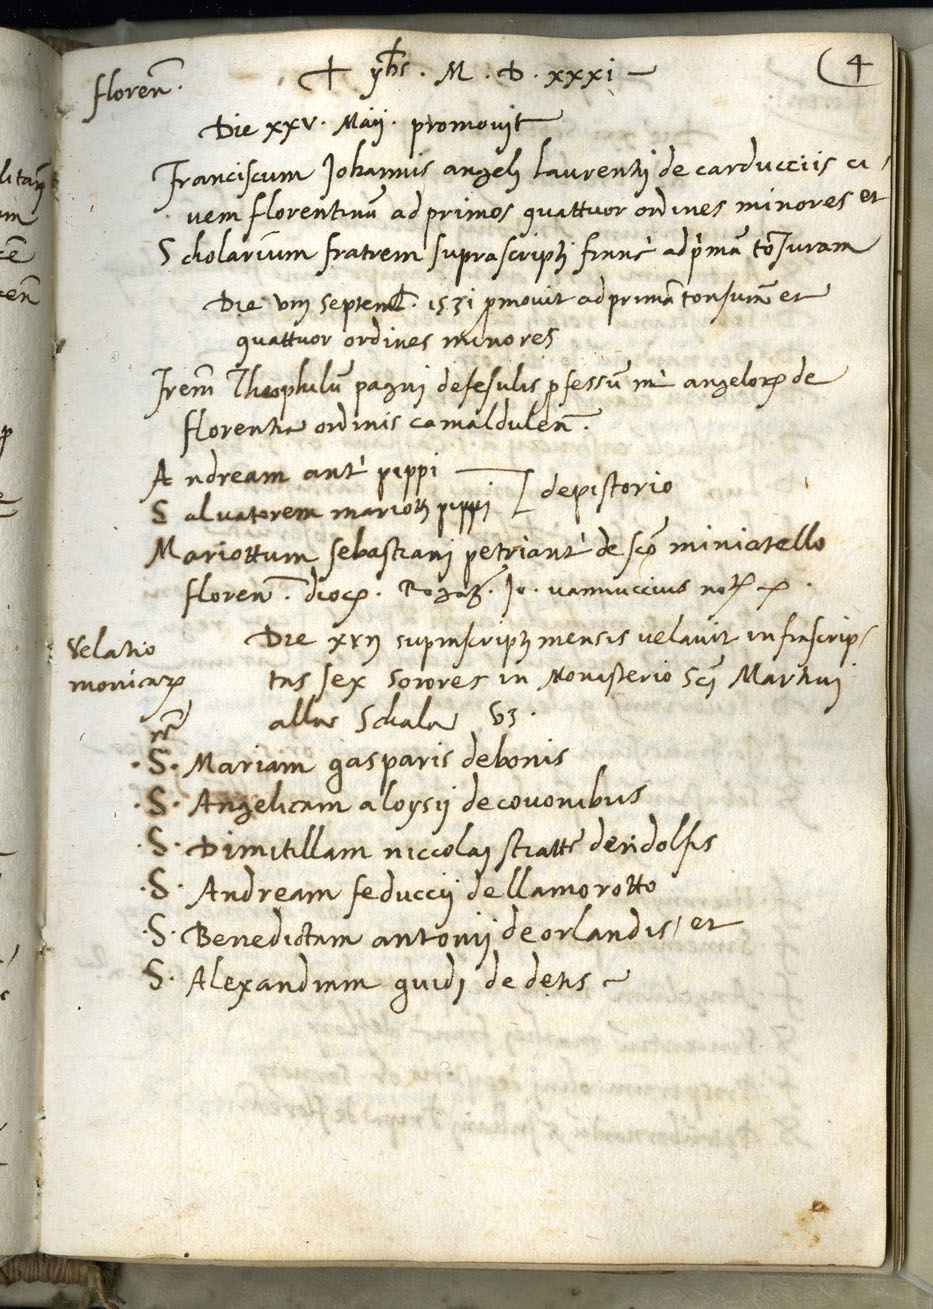 4
floreñ.
+ yhs . M . D . xxxi —
Die xxv. Maij. promovit
Franciscum Johannis angeli laurentij de carducciis ci/
vem florentinū ad primos quattuor ordines minores et
Scholarium fratrem suprascriptj franc' ad p̄mā tōsuram
Die viij septemb. 1531 promovit ad primā tonsurā et
quattuor ordines minores
frem̄ Theophilū pagni de fesulis professū m' angeloꝝ de
florentia ordinis camalduleñ.
Andream ant' pippi — [ de pistorio
Salvatorem mariottj pippj
Mariottum sebastianj petri ant' de scō miniatello
floreñ. dioc. Rogat. Jo. vannuccius not
Velatio
moniaꝝ
Die xxij suprascriptj mensis velavit infrascrip/
tas sex sorores in Monisterio Scī Martini
alla Schala vz.
.S. Mariam gasparis de bonis
.S. Angelicam aloysij de covonibus
.S. Dimitillam niccolaj de ridolfis
.S. Andream feduccij della morotto
.S. Benedictam antonij de orlandis / et
.S. Alexandram guidj de detis